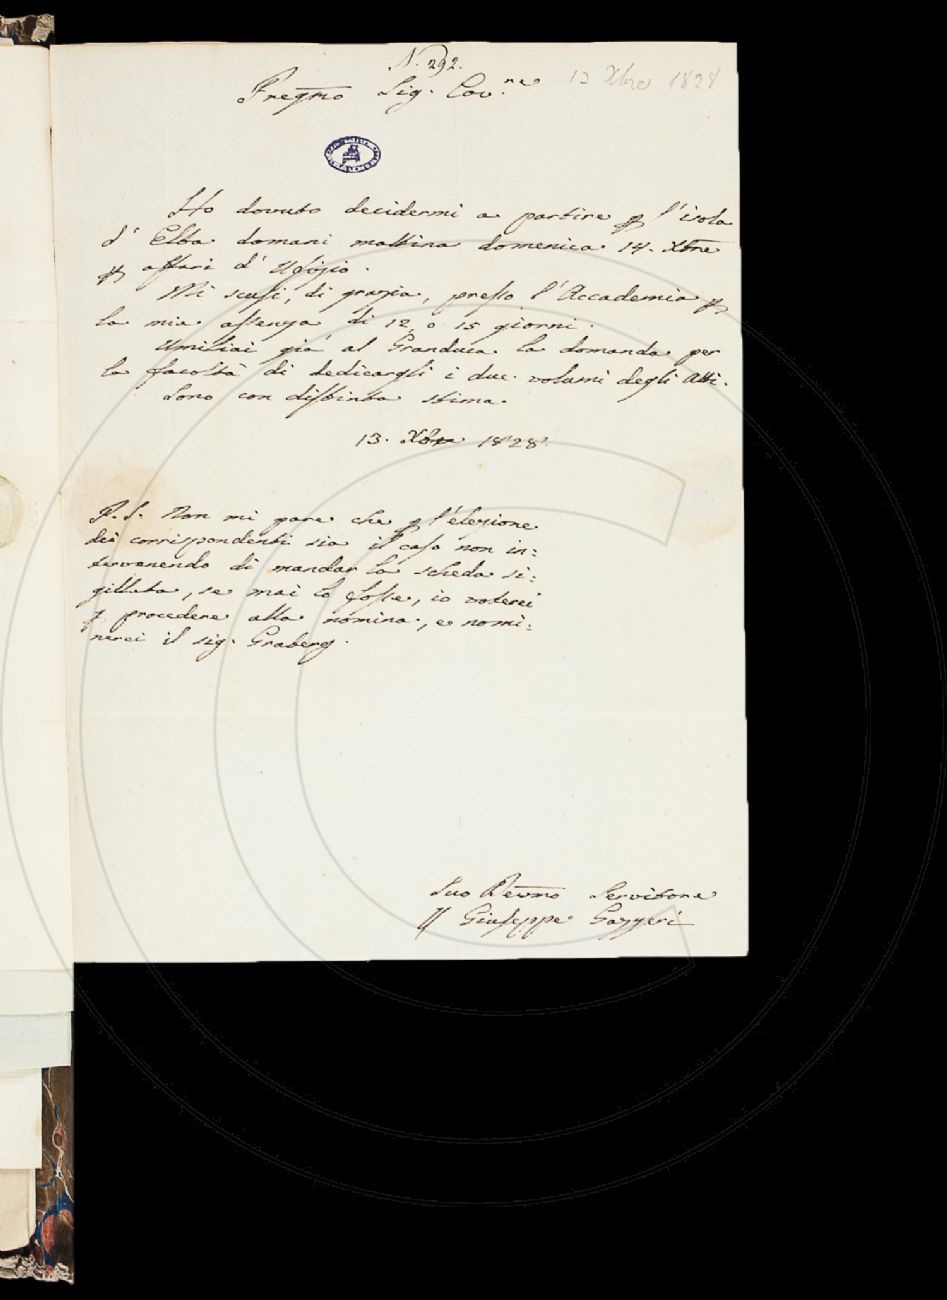 N. 292.
Pregmo Sig. Cav.re
13 Xbre 1828
Ho dovuto decidermi a partire p l'isola
d'Elba domani mattina domenica 14. Xbre
p affari d'Ufizio.
Mi scusi, di grazia, presso l'Accademia p
la mia assenza di 12 o 15 giorni.
Umiliai già al Granduca la domanda per
la facoltà di dedicargli i due volumi degli Atti.
Sono con distinta stima.
13. Xbre 1828.
P.S. Non mi pare che p l'elezione
dei corrispondenti sia il caso non in=
tervenendo di mandar la scheda si=
gillata, se mai lo fosse, io voterei
p procedere alla nomina, e nomi=
nerei il sig. Graberg.
Suo Devmo Servitore
Giuseppe Gazzeri